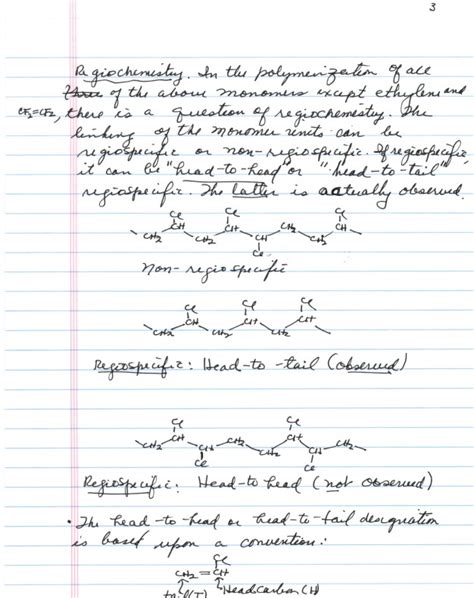 3
Regiochemistry. In the polymerization of all
of the above monomers except ethylene and
CF2=CF2, there is a question of regiochemistry. The
linking of the monomer units can be
regiospecific or non-regiospecific. If regiospecific,
it can be "head-to-head" or "head-to-tail"
regiospecific. The latter is actually observed.
Cl Cl Cl
CH CH CH2 CH
CH2 CH2 CH CH2
Cl
non-regiospecific
Cl Cl Cl
CH CH CH
CH2 CH2 CH2
Regiospecific: Head-to-tail (observed)
Cl Cl
CH CH2 CH CH2
CH2 CH CH2 CH
Cl Cl
Regiospecific: Head-to head (not observed)
• The head-to-head or head-to-tail designation
is based upon a convention:
Cl
CH2=CH
Head carbon (H)
tail (T)